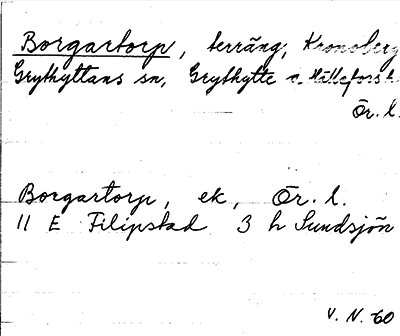 Borgartorp, terräng, Kronoberg
Grythyttans sn, Grythytte o. Hällefors h
Ör. l.
Borgartorp, ek, Ör. l.
11 E Filipstad 3 h Sundsjön
V. N. 60